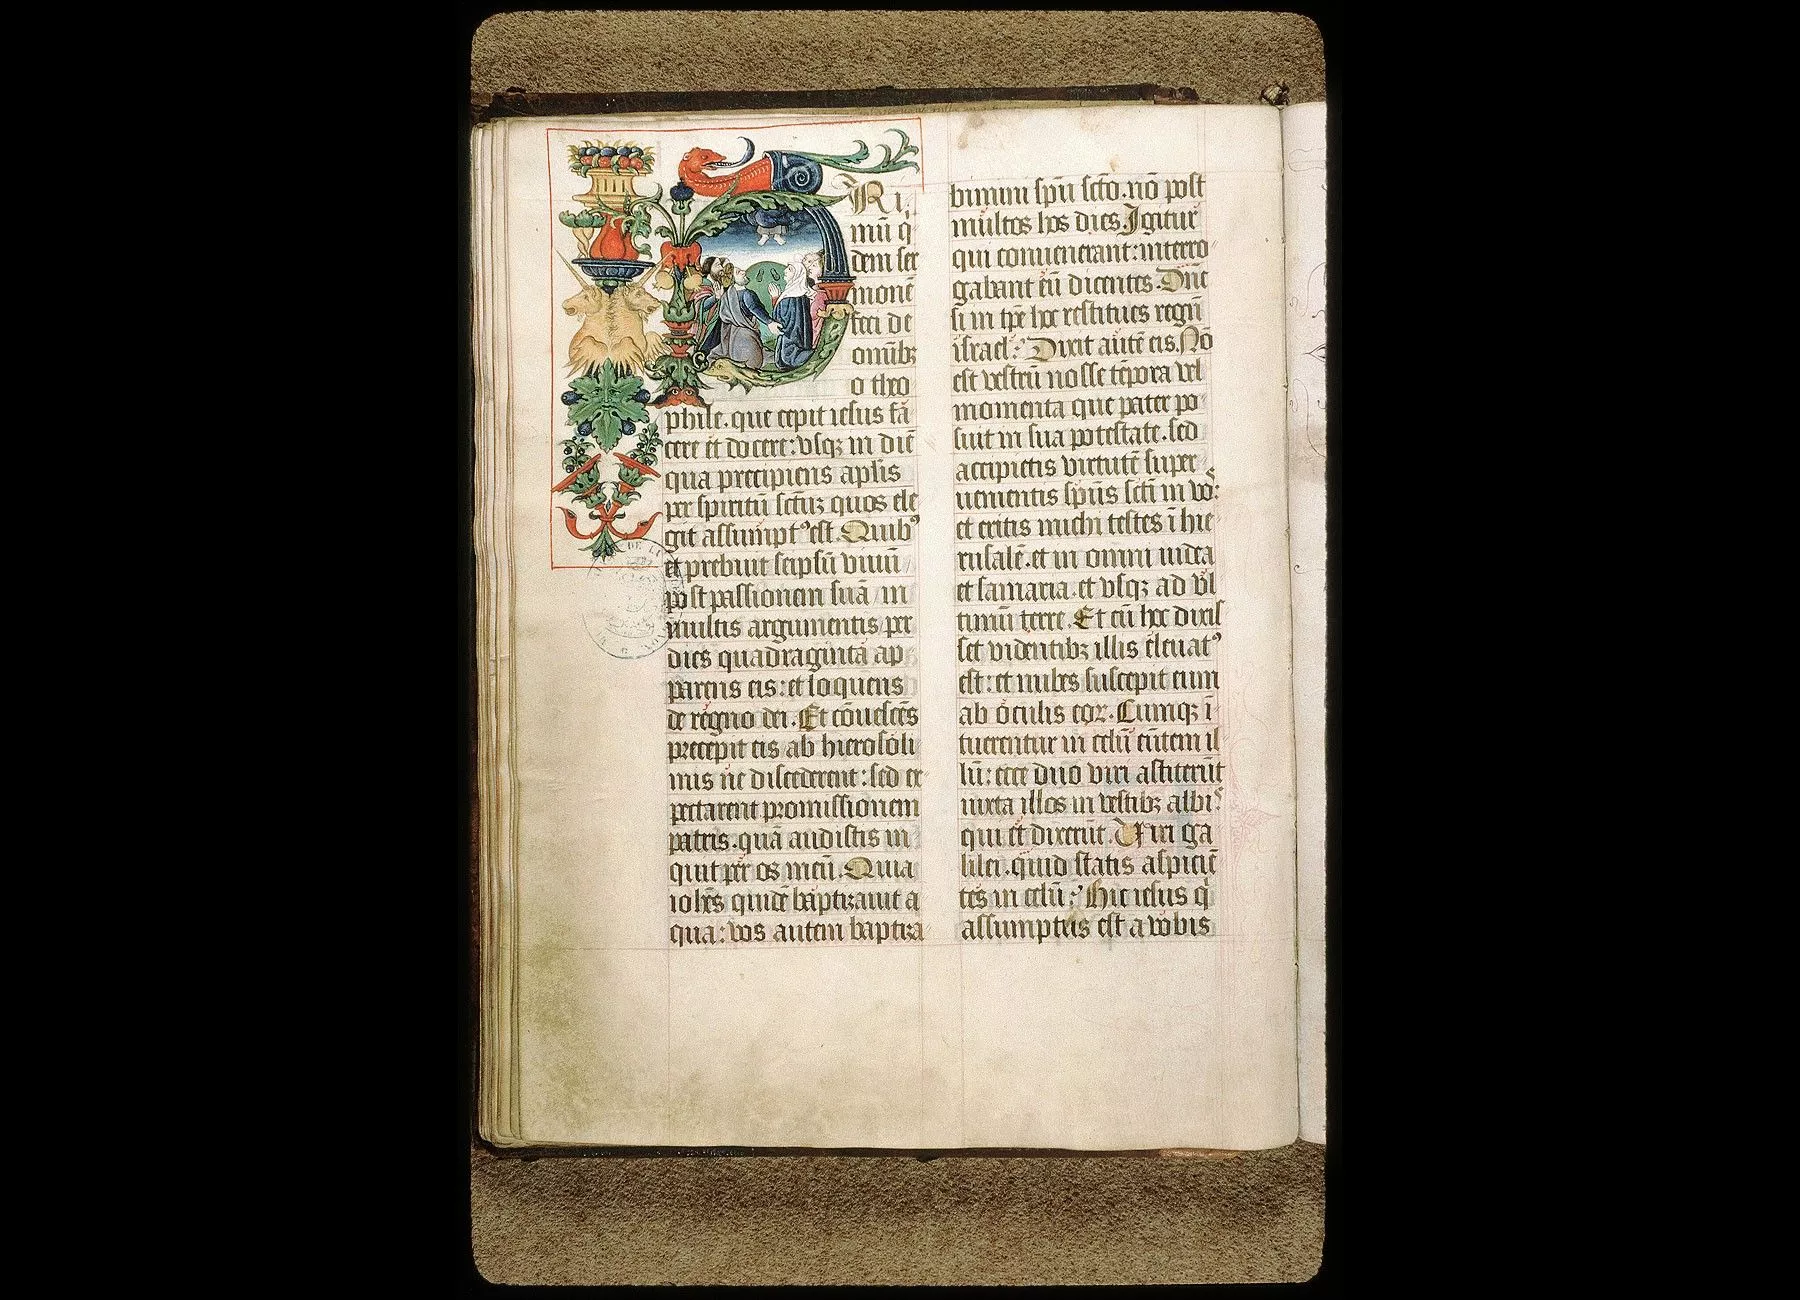 Ri
mū q̄
dem ser
monē
feci de
omībꝫ
o theo
phile. que cepit iesus fa
cere et docere: vsqꝫ in diē
qua precipiens apl̄is
per spiritū sctūꝫ quos ele
git assumptꝰ est. Quibꝰ
et prebuit seipsū viuū
post passionem suā in
multis argumentis per
dies quadraginta ap
parens eis: et loquens
de regno dei. Et cōuescēs
precepit eis ab hierosoli
mis ne discederent: sed ex
pectarent promissionem
patris. quā audistis in
quit per os meū. Quia
ioh̄es quidē baptizauit a
qua: vos autem baptiza
bimini spū scto. nō post
multos hos dies. Igitur
qui conuenerant: interro
gabant eū dicentes. Dn̄e
si in tp̄e hoc restitues regnū
israel? Dixit autē eis. Nō
est vestrū nosse tēpora vel
momenta que pater po
suit in sua potestate. sed
accipietis virtutē super
uenientis spūs sctī in vo
et eritis michi testes ī hie
rusalē. et in omni iudea
et samaria. et vsqꝫ ad vl
timū terre. Et cū hoc dixis
set videntibꝫ illis eleuatꝰ
est: et nubes suscepit eum
ab oculis eoꝝ. Cumqꝫ ī
tuerentur in celū eūtem il
lū: ecce duo viri astiterūt
iuxta illos in vestibꝫ albis
qui et dixerūt. Viri ga
lilei. quid statis aspiciē
tes in celū? Hic iesus q̄
assumptus est a vobis